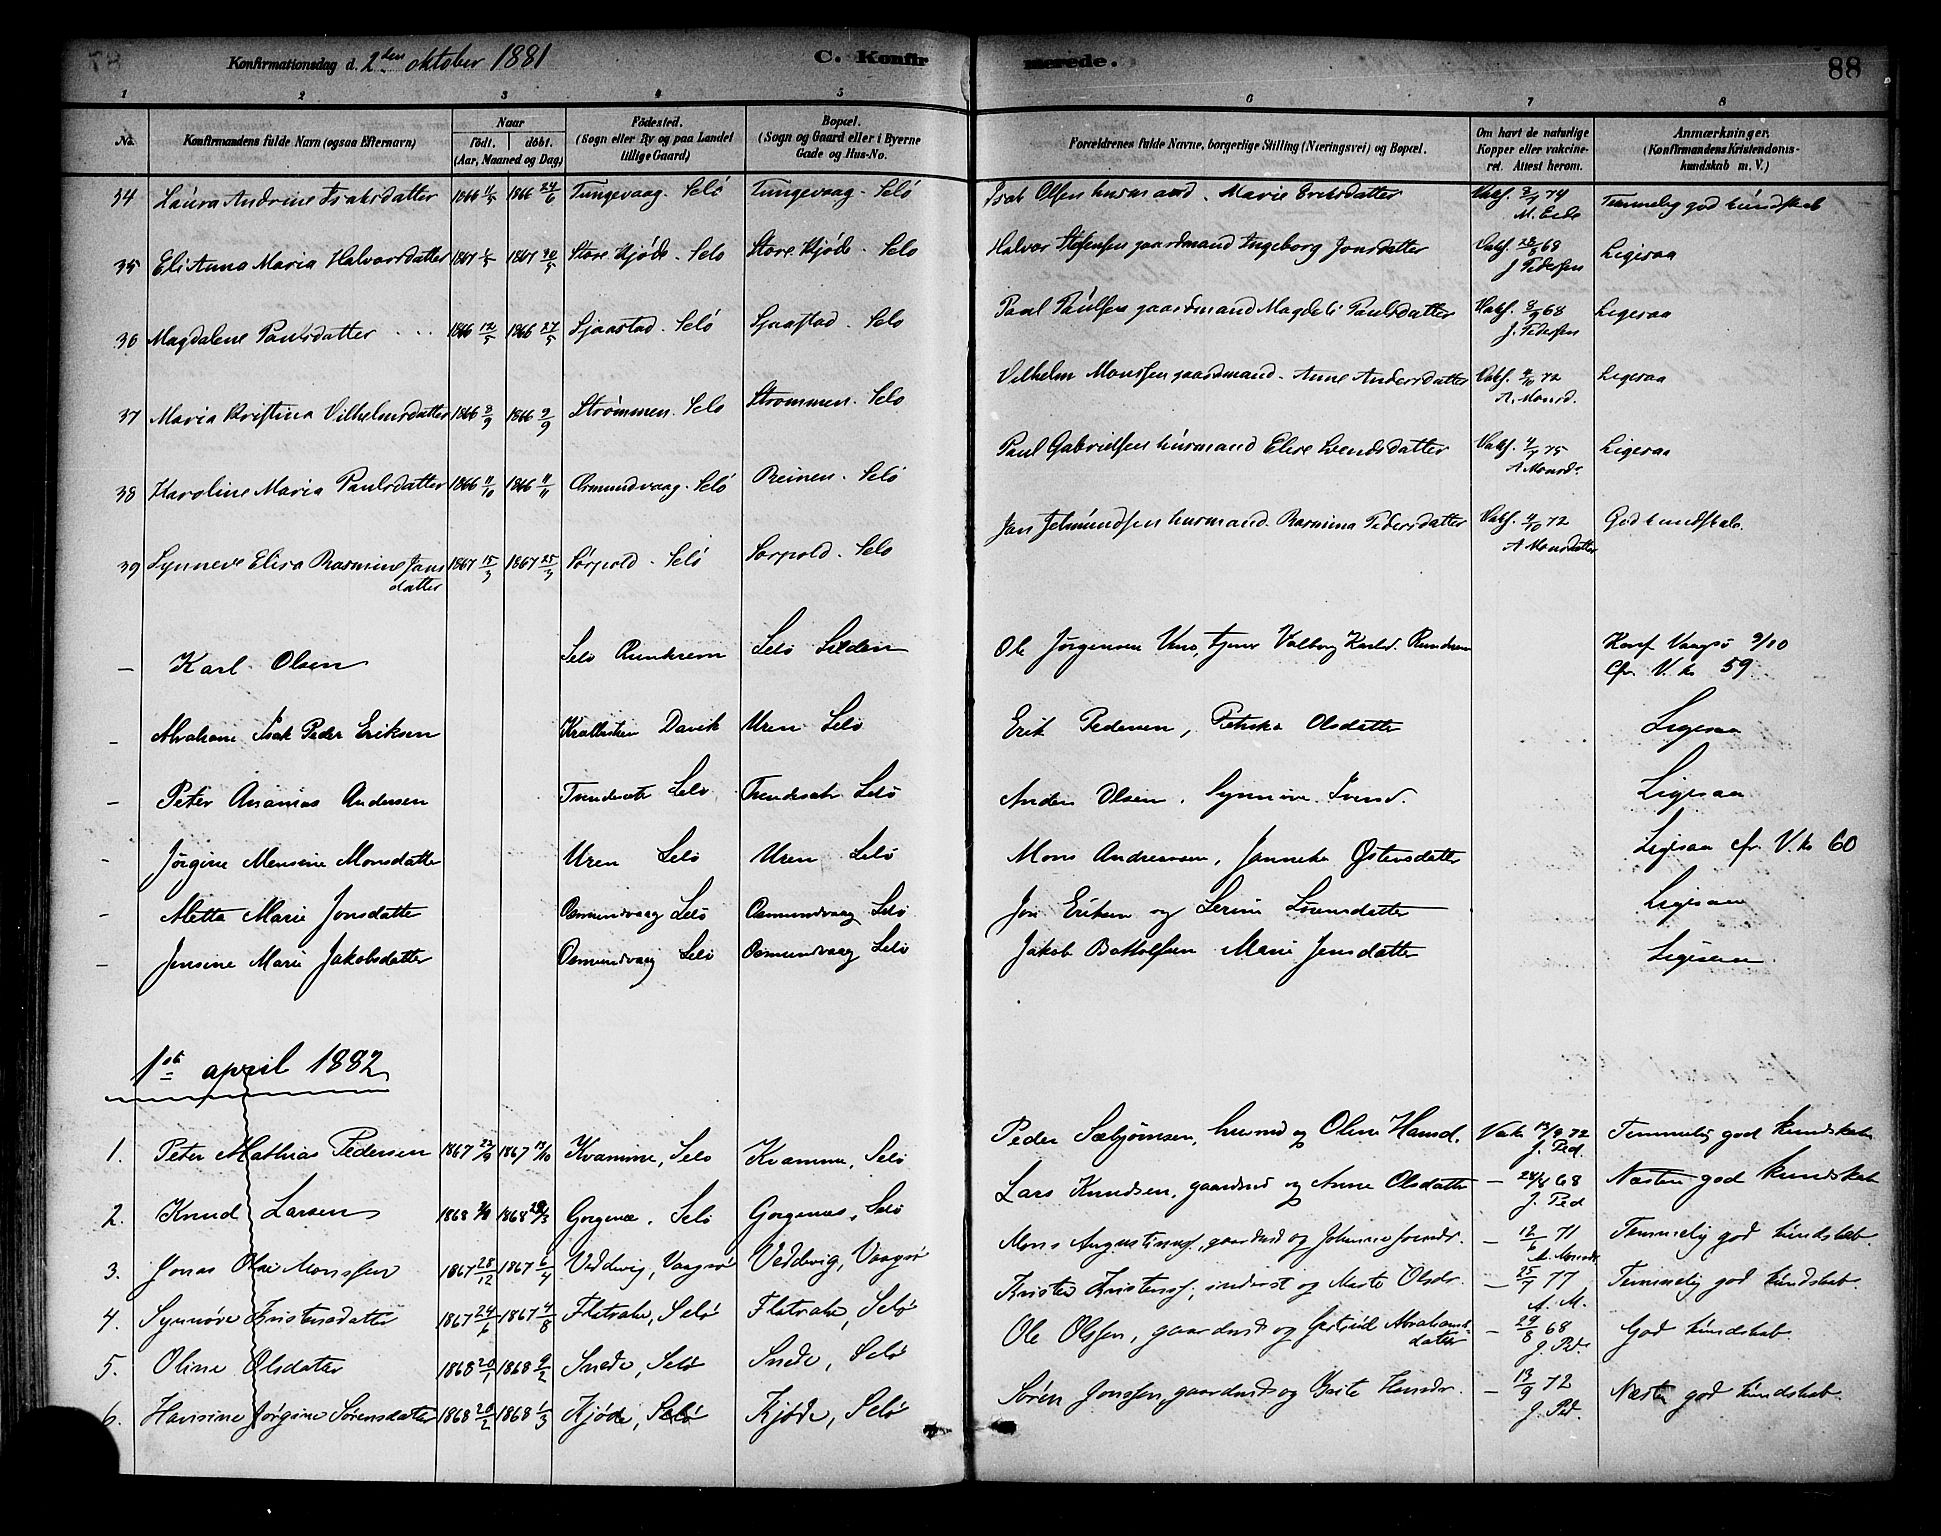 Konfirmationsdag d. 2den oktober 1881 C. Konfirmerede. 88
1 2 3 4 5 6 7 8
No. Konfirmandens fulde Navn (ogsaa Efternavn) Naar født. døbt. (Aar, Maaned og Dag) Fødested. (Sogn eller By og paa Landet tillige Gaard) Bopæl. (Sogn og Gaard eller i Byerne Gade og Hus-No. Forældrenes fulde Navne, borgerlige Stilling (Næringsvei) og Bopæl. Om havt de naturlige Kopper eller vakcineret. Attest herom. Anmærkninger. (Konfirmandens Kristendomskundskab m. V.)
34 Laura Andrine Isaksdatter 1866 11/5 1866 24/6 Tungevaag. Selø Tungevaag. Selø Isak Olsen husmand. Marie Eriksdatter Vakf. 74 M. Eide Temmelig god kundskab
35 Eli Anna Maria Halvorsdatter 1867 1/5 1867 30/5 Store Kjøde. Selø Store Kjøde. Selø Halvor Stefensen gaardmand Ingeborg Jonsdatter Vakf. 28/8 68 J Pedersen Ligesaa
36 Magdalene Paulsdatter 1866 12/5 1866 27/5 Sjaastad. Selø Sjaastad. Selø Paul Paulsen gaardmand Magdeli Paulsdatter Vakf. 8/9 68 J. Pedersen Ligesaa
37 Maria Kristina Vilhelmsdatter 1866 2/9 1866 9/9 Strømmen. Selø Strømmen. Selø Vilhelm Monssen gaardmand. Anne Andersdatter Vakf. 4/10 72 A. Monsd. Ligesaa
38 Karoline Maria Paulsdatter 1866 11/10 1866 11/11 Osmundvaag. Selø Reinen. Selø Paul Gabrielsen husmand Elise Svendsdatter Vakf. 75 A Monsdr. Ligesaa
39 Synneve Elisa Rasmine Jansdatter 1867 15/3 1867 25/3 Sørpold. Selø Sørpold. Selø Jan Jetmundsen husmand. Rasmina Pedersdatter Vakf. 4/10 72 A Monsdatter God kundskab.
– Karl Olsen Selø Rundreim Selø Silden Ole Jørgensen Uno, tjener Valborg Karlsd. Rundreim Konf Vaagsø 9/10 cfr. V. ks 59.
– Abraham Isak Peder Eriksen Davik Uren Selø Erik Pedersen, Petrika Olsdatter Ligesaa
– Peter Ananias Andersen Tundesæt Selø Tundesæt Selø Anders Olsen. Synnøve Svend. Ligesaa
– Jørgine Mensine Monsdatter Uren Selø Uren Selø Mons Andreassen, Janneke Østensdatter Ligesaa cfr. V. ks 60
– Metta Marie Jonsdatter Osmundvaag Selø Osmundvaag Selø Jon Eriksen og Serine Sørensdatter Ligesaa
– Jensine Marie Jakobsdatter Osmundvaag Selø Osmundvaag Selø Jakob Botholfsen Marie Jensdatter Ligesaa.
1ste april 1882
1. Peter Mathias Pedersen 1867 22/9 1867 13/10 Kvamme, Selø Kvamme, Selø Peder Sæbjørnsen, husmd og Oline Hansd. Vaks 13/9 72 J. Ped. Temmelig god kundskab
2. Knud Larsen 1868 1868 29/3 Gorgenæs, Selø Gorgenæs, Selø Lars Knudsen, gaardmd og Anne Olsdatter – 28/8 68 J. Ped Næsten god kundskab
3. Jonas Olai Monssen 1867 28/12 1867 6/4 Veddevig, Vaagsø Veddevig, Vaagsø Mons Augustinusf., gaardmd og Johanne Joensdr. – 12/6 71 A. Monsdr Temmelig god kundskab.
4. Synnøve Kristensdatter 1867 24/6 1867 4/8 Flatrake, Selø Flatrake, Selø Kristen Kristensf., inderst og Marte Olsdr. – 25/7 77 A. M. Temmelig god kundskab.
5. Oline Olsdatter 1868 20/1 1868 9/2 Snede, Selø Snede, Selø Ole Olsen, gaardmd og Gertrud Abrahamsdatter – 29/8 68 J. Ped. God kundskab.
6. Hansine Jørgine Sørensdatter 1868 20/2 1868 1/3 Kjøde, Selø Kjøde, Selø Søren Jonssen, gaardmd og Berte Hansdr. – 13/9 72 J. Ped. Næsten god kundskab.